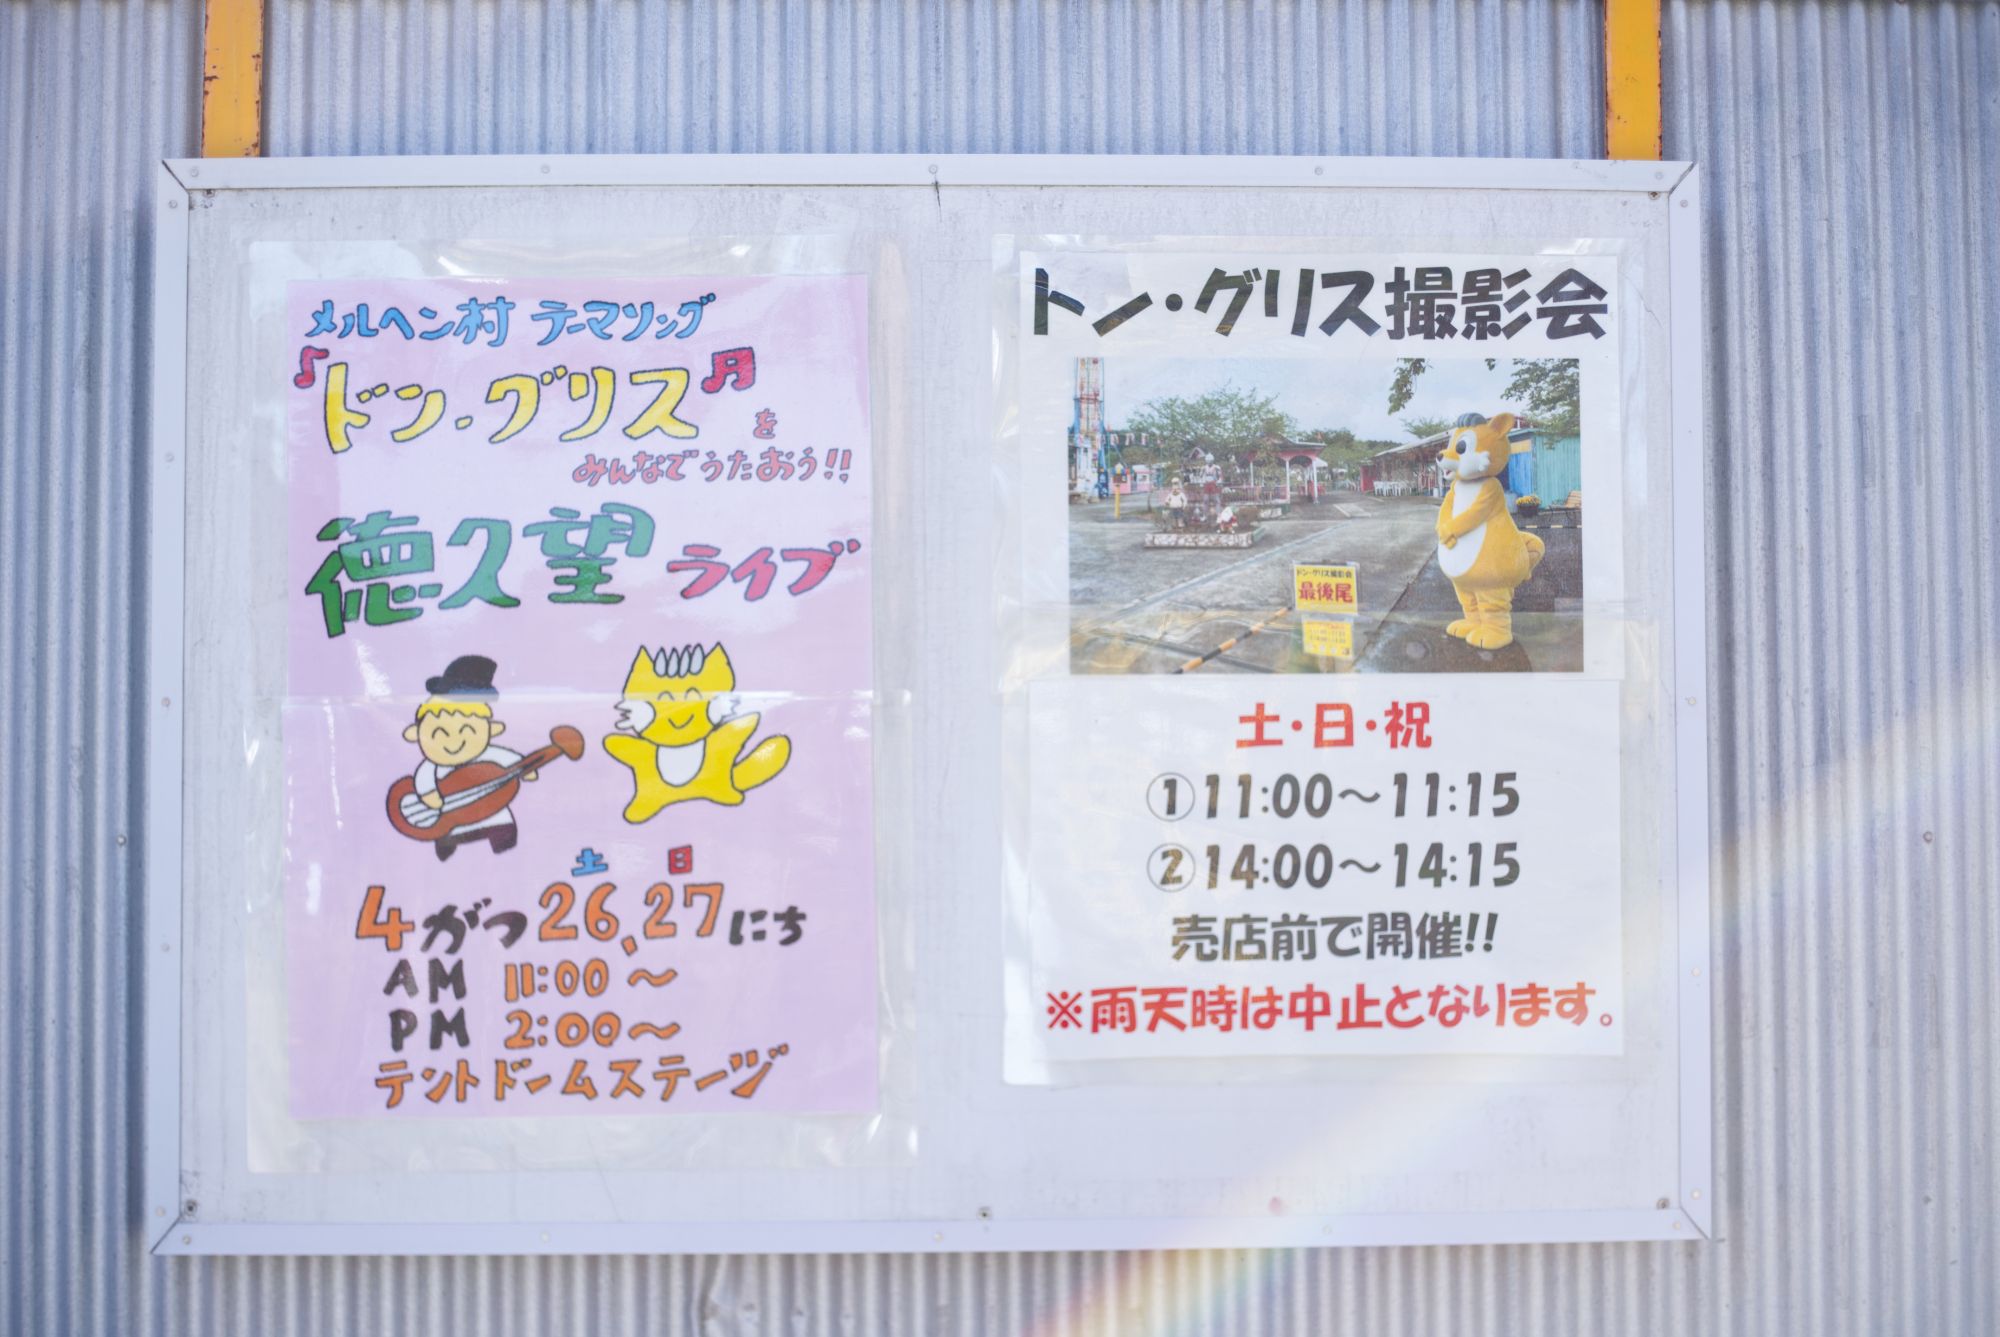 メルヘン村 テーマソング
♪ドン・グリス♬を
みんなでうたおう!!
徳久望 ライブ
土 日
4がつ26、27にち
AM 11:00～
PM 2:00～
テントドームステージ
トン・グリス撮影会
ドン・グリス撮影会
最後尾
土・日・祝
①11:00～11:15
②14:00～14:15
売店前で開催!!
※雨天時は中止となります。